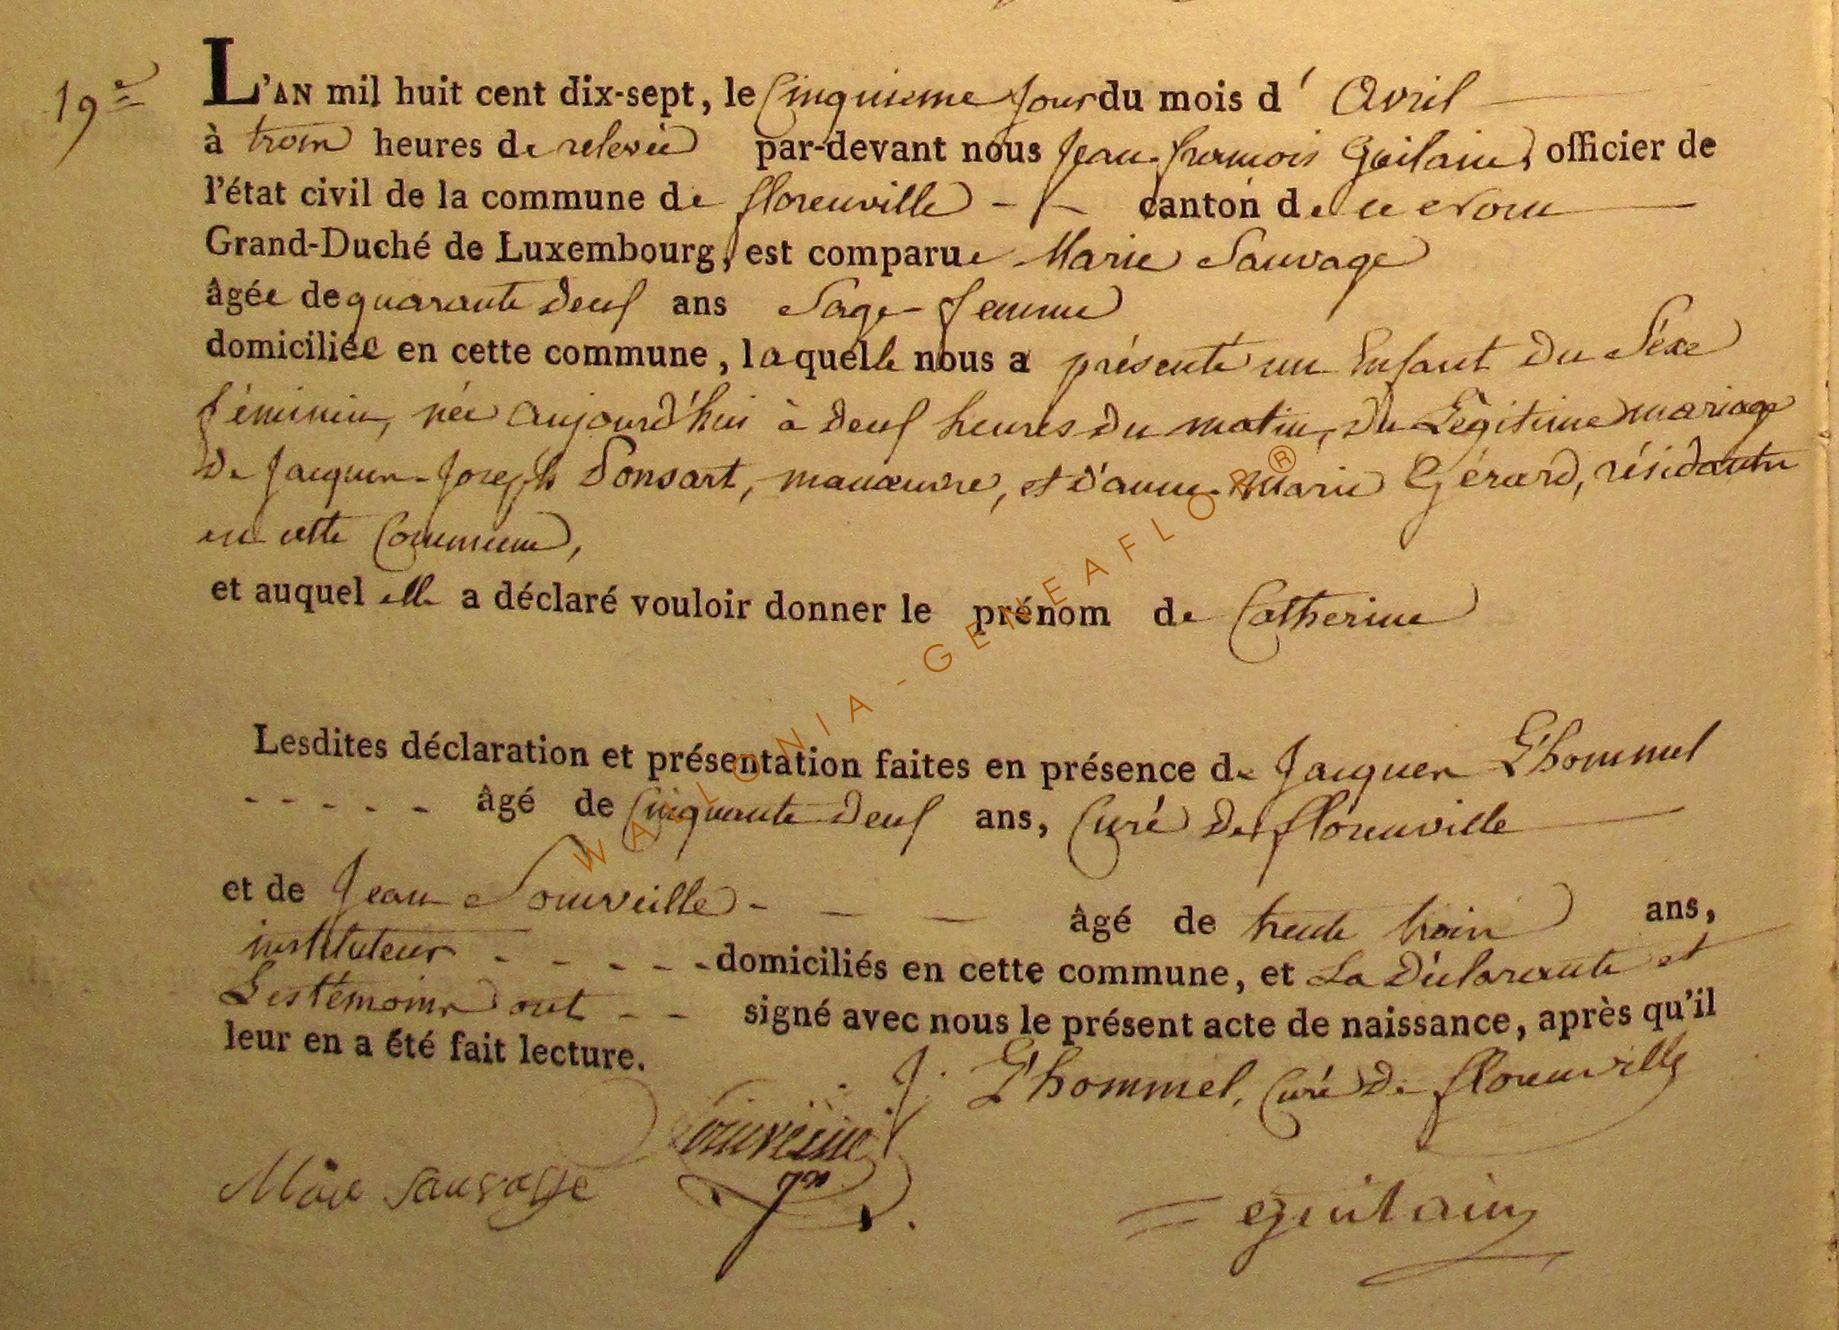 19e
L'AN mil huit cent dix-sept, le Cinquieme Jour du mois d' Avril
à trois heures de relevée par-devant nous Jean-françois Guilain, officier de
l'état civil de la commune de florenville - - canton de ce nom
Grand-Duché de Luxembourg, est comparue Marie Sauvage
âgée de quarante deux ans Sage-femme
domiciliée en cette commune, laquelle nous a présenté un Enfant du Séxe
féminin, née aujourd'hui à deux heures du matin, du Légitime mariage
De Jacques-Joseph Ponsart, manœuvre, et d'anne-Marie Gérard, résidants
en cette Commune,
et auquel elle a déclaré vouloir donner le prénom de Catherine
Lesdites déclaration et présentation faites en présence de Jacques L'hommel
- - - - - âgé de Cinquante deux ans, Curé De florenville
et de Jean - - - âgé de trente trois ans,
instituteur - - - - - domiciliés en cette commune, et La Déclarante et
Les témoins ont - - signé avec nous le présent acte de naissance, après qu'il
leur en a été fait lecture.
J. L'hommel, Curé De florenville
Marie sauvage
guilain
WALLONIA-GENEAFLOR®